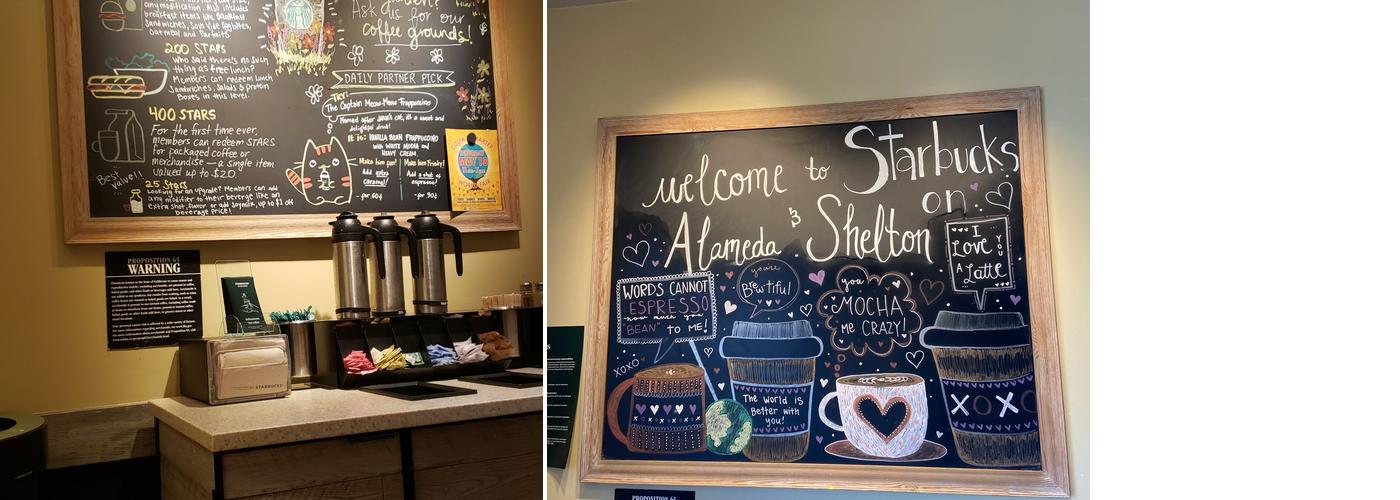 any modification. Also includes
breakfast items like Breakfast
Sandwiches, Sous Vide Egg bites,
Oatmeal and Parfaits.
200 STARS
Who said there's no such
thing as free lunch?
Members can redeem lunch
Sandwiches, Salads & Protein
Boxes in this level.
400 STARS
For the first time ever,
members can redeem STARS
for packaged coffee or
merchandise — a single item
valued up to $20
Best
value!!
25 Stars
Looking for an upgrade? Members can add
any modifier to their beverage like an
extra shot, flavor or add soymilk, up to $1 off
beverage price!
Ask us for our
coffee grounds!
DAILY PARTNER PICK
TRY:
The Captain Meow-Meow Frappuccino
Named after cat, it's a sweet and
delightful drink!
It is: VANILLA BEAN FRAPPUCCINO
with WHITE MOCHA and
HEAVY CREAM.
Make him purr!
Add extra
Caramel!
- for 60¢
Make him Frisky!
Add a shot of
espresso!
- for 90¢
MAY 18
PROPOSITION 65
WARNING
STARBUCKS
welcome to Starbucks
on
Alameda & Shelton
I
Love YOU
A Latte
WORDS CANNOT
ESPRESSO
how much you
"BEAN" TO ME!
you're
Brewtiful
you
MOCHA
me CRAZY!
XOXO
The world is
Better with
you!
XOXO
PROPOSITION 65